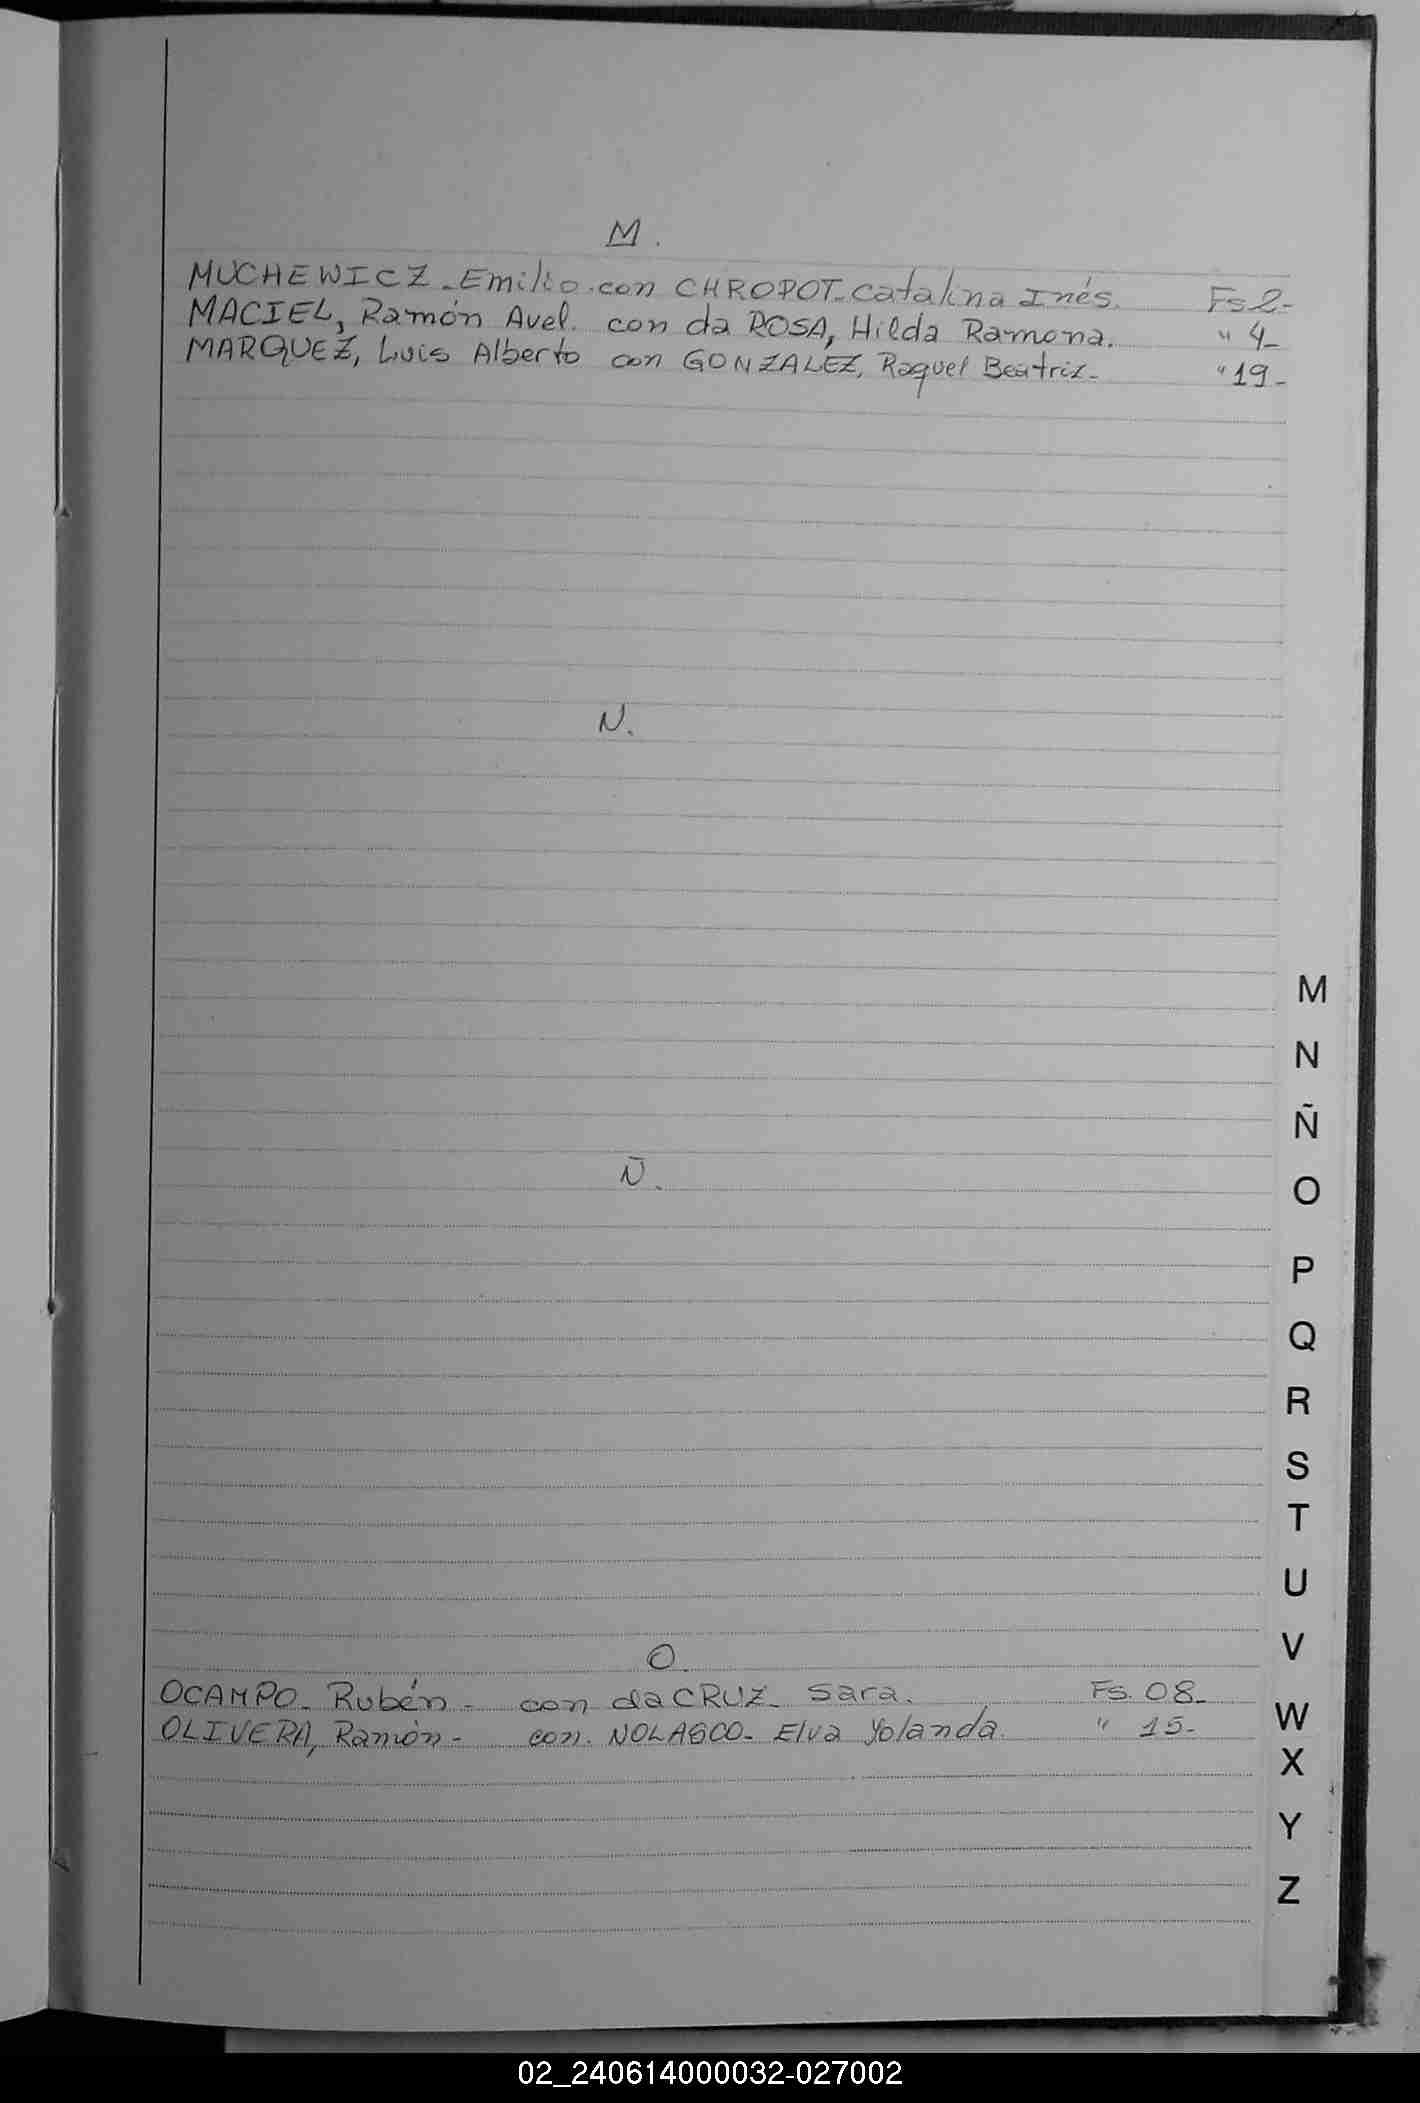 M.
MUCHEWICZ - Emilio. con CHROPOT - Catalina Inés. Fs 2-
MACIEL, Ramón Avel. con da ROSA, Hilda Ramona. " 4-
MARQUEZ, Luis Alberto con GONZALEZ, Raquel Beatriz- " 19-
N.
Ñ.
O.
OCAMPO- Rubén - con da CRUZ- Sara. Fs. 08-
OLIVERA, Ramón - con. NOLASCO- Elva Yolanda. " 15-
M
N
Ñ
O
P
Q
R
S
T
U
V
W
X
Y
Z
02_240614000032-027002